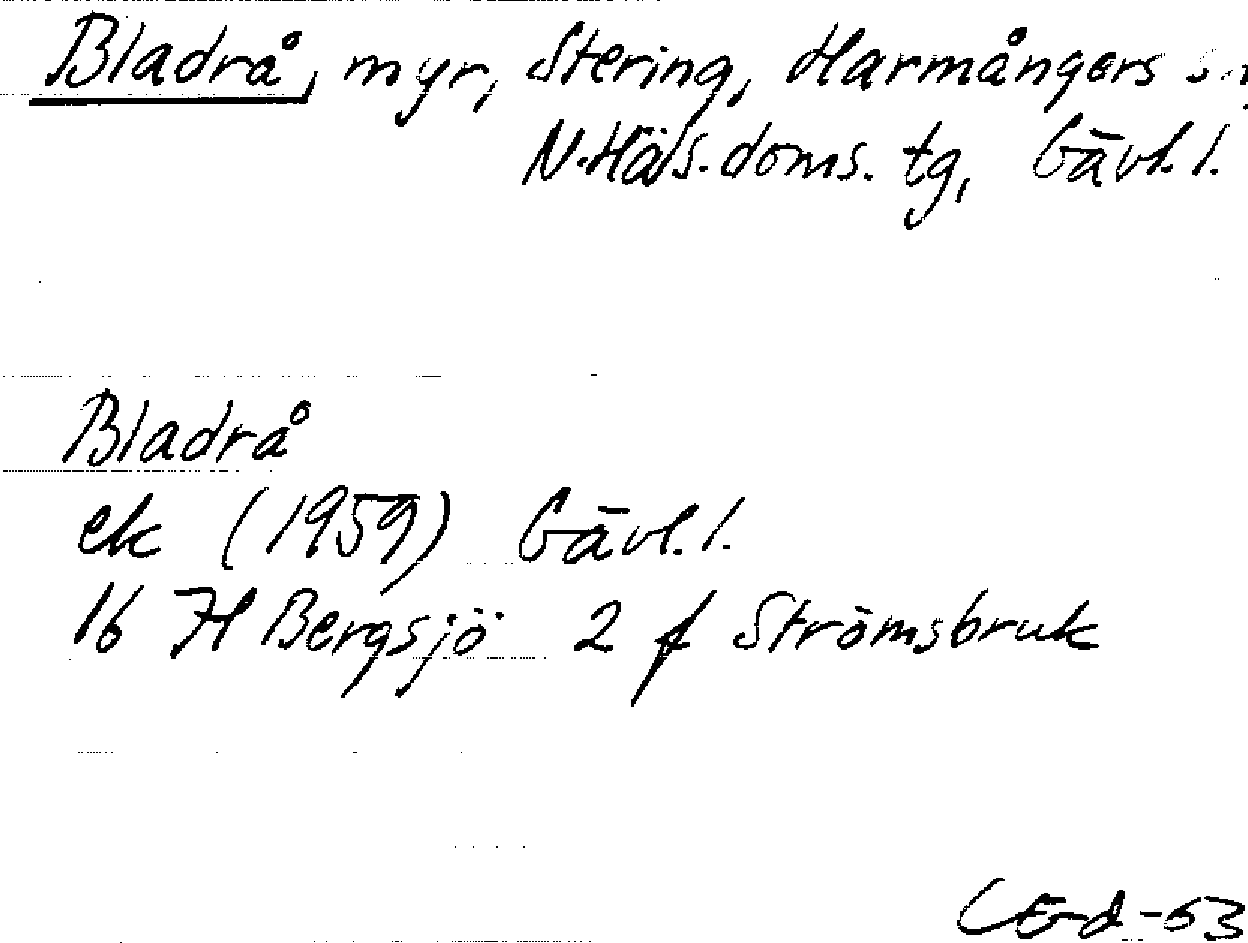 Bladrå, myr, Stering, Harmångers sn,
N. Häls. doms. tg, Gävl. l.
Bladrå
ek (1959) Gävl. l.
16 H Bergsjö 2 f Strömsbruk